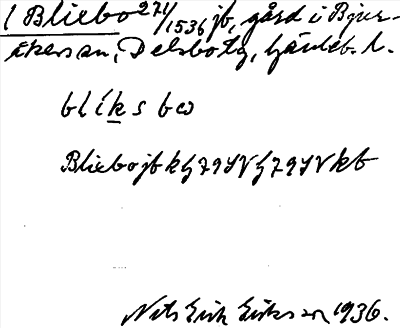 1 Bliebo 271/1536 jb, gård i Bjur-
åkers sn, Delsbo tg, Gävleb. l.
blíks bω
Bliebo jb kG 79 SV G 79 SV kb
Nils Erik Eriksson 1936.